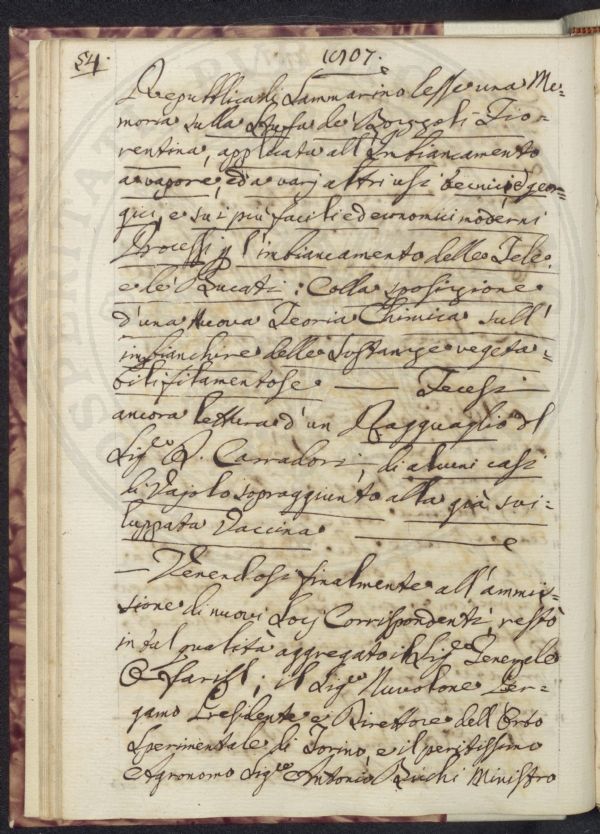 54.
1807.
Repubblica di Sammarino lesse una Me=
moria sulla Stufa de' Bozzoli Fio=
rentina, applicata all'Imbiancamento
a vapore, ed a varj altri usi tecnici, e geor=
gici, e su i più facili ed economici moderni
Processi p l'imbiancamento delle Tele,
e le Bucati: Colla sposizione
d'una nuova Teoria Chimica sull'
imbianchire delle Sostanze vegeta=
bili filamentose — Fecesi
ancora lettura d'un Ragguaglio del
Sig.re Carradori, di alcuni casi
di Vajolo sopraggiunto alla già svi=
luppata Vaccina
— Venendosi finalmente all'ammis=
sione di nuovi Socj Corrispondenti, restò
in tal qualità aggregato il Sig.e Generale
; il Sig.e Nuvolone Per=
gamo Presidente e Direttore dell'Orto
Sperimentale di Torino, e il peritissimo
Agronomo Sig.e Antonio Ministro